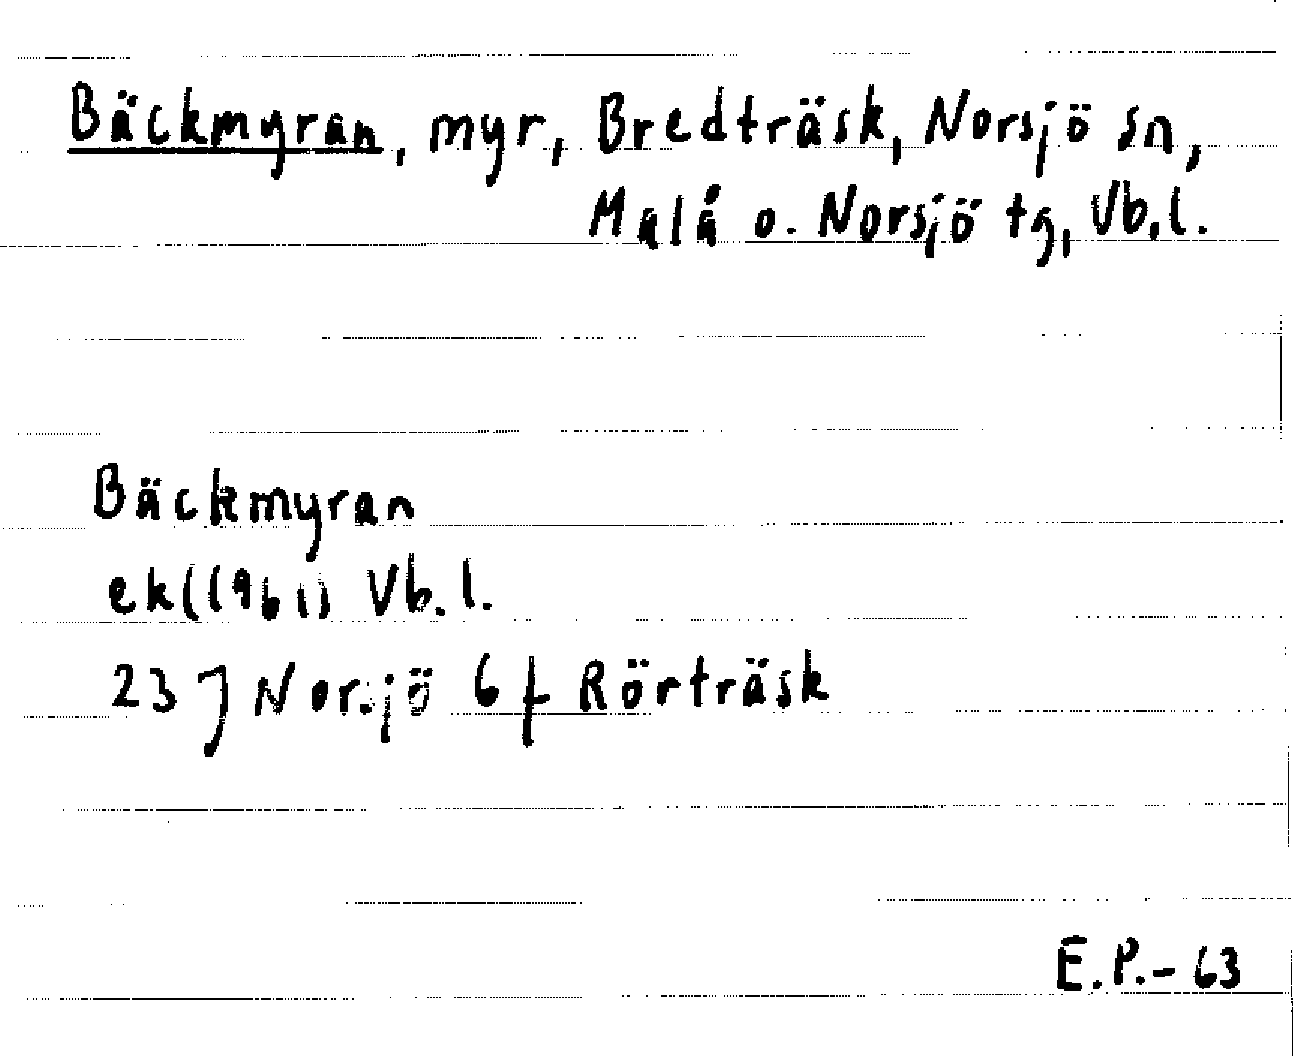 Bäckmyran, myr, Bredträsk, Norsjö sn,
Malå o. Norsjö tg, Vb.l.
Bäckmyran
ek((1961) Vb.l.
23 J Norsjö 6 f Rörträsk
E.P.-63